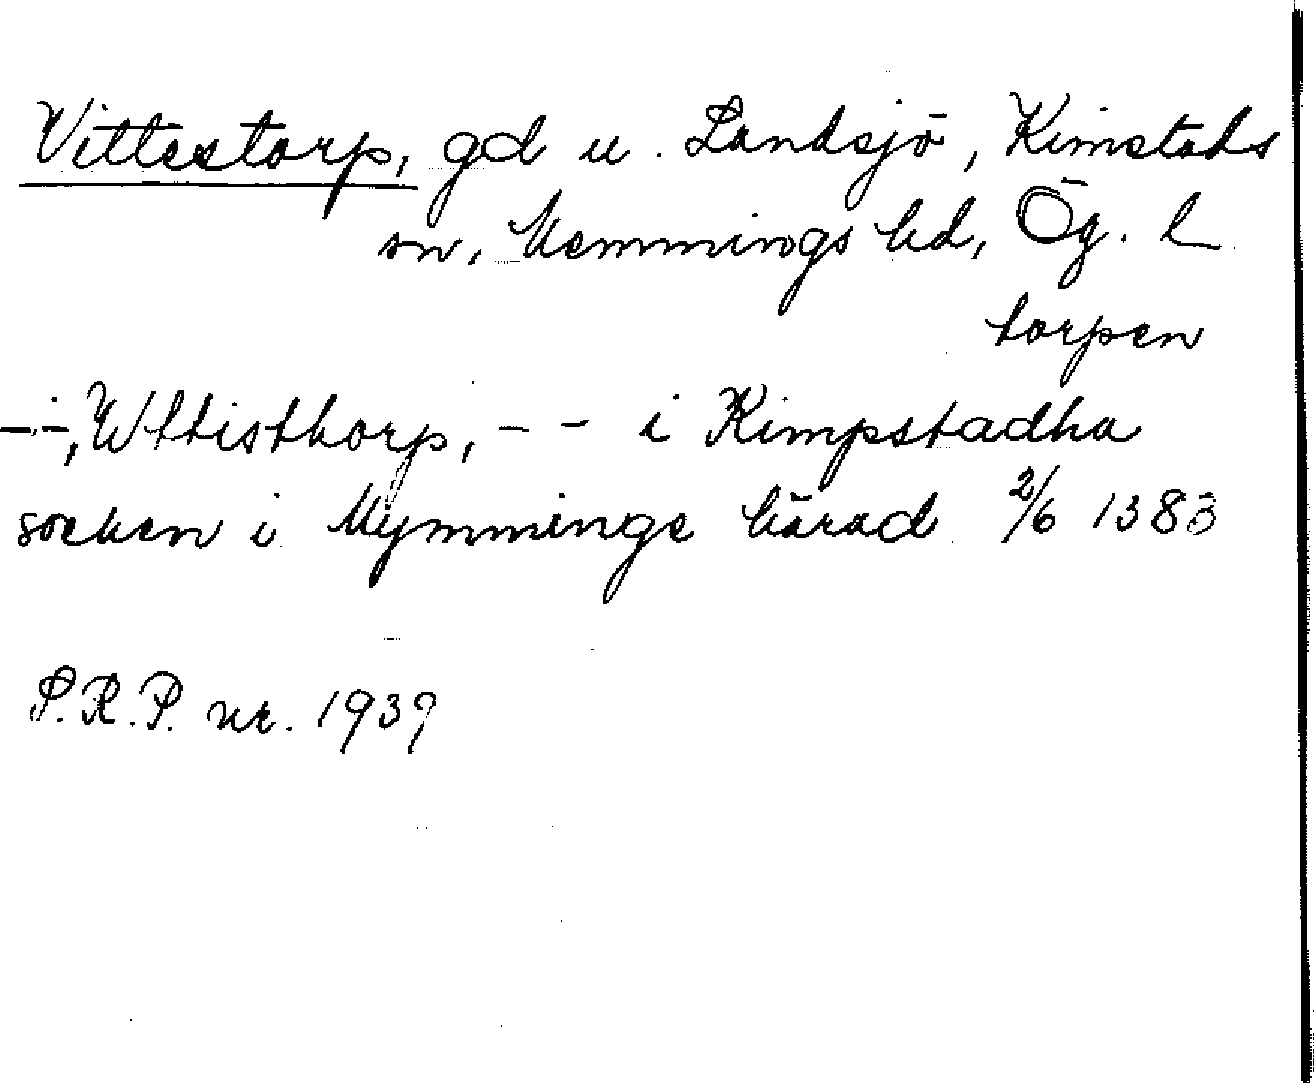 Vittestorp, gd u. Landsjö, Kimstads
sn, Memmings hd, Ög. l
torpen
--, Wttisthorp, - - i Kimpstadha
socken i Mymminge härad 2/6 1383
S.R.P. nr. 1939